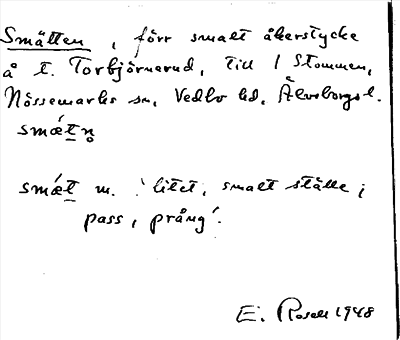 Smätten, förr smalt åkerstycke
å t. Torbjörnerud, till 1 Stommen,
Nössemarks sn, Vedbo hd, Älvsborgs l.
smǽt̲n̥
smǽt̲ m. 'litet, smalt ställe i
pass, prång'.
E. Rosell 1948